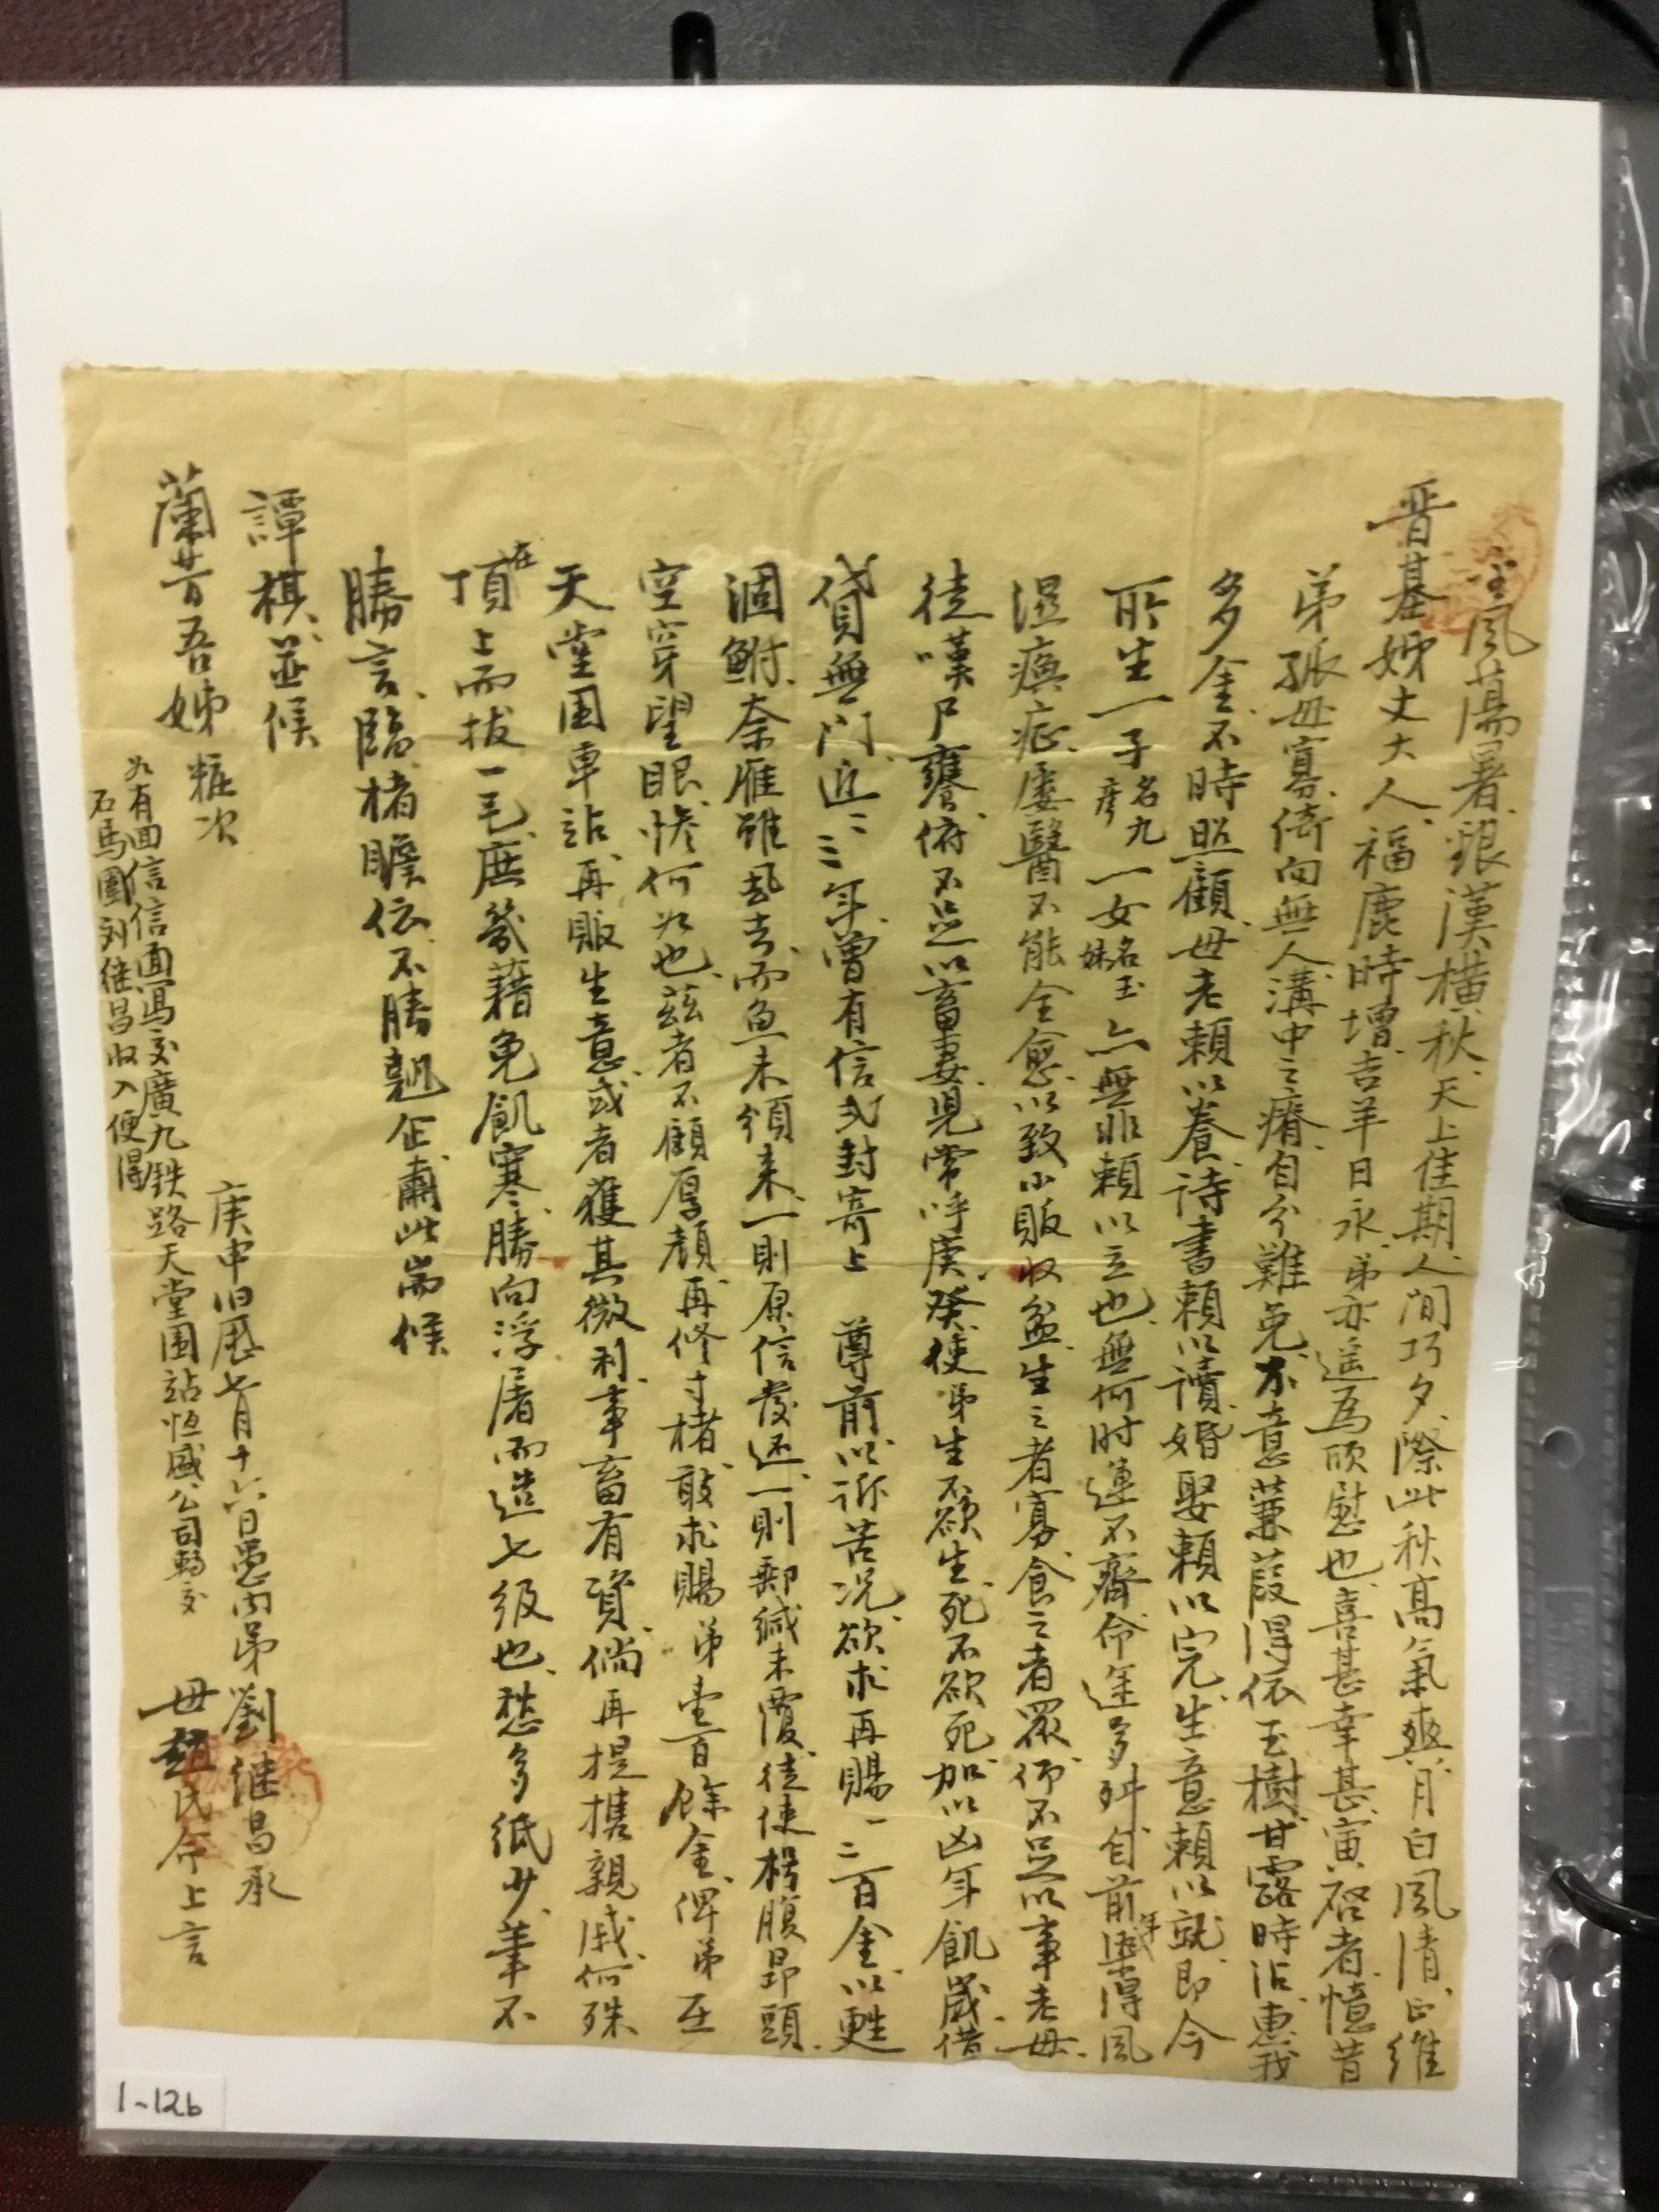 金風蕩暑、銀漢橫秋、天上佳期、人間巧夕、際此秋高氣爽、月白風清、正維
晋基姊丈大人、福鹿時增、吉羊日永、弟亦遥為頎慰也、喜甚幸甚、寅啓者、憶昔
弟孤母寡、倚向無人、溝中之瘠、自分難免、不意蒹葭得依玉樹、甘露時沾、惠我
多金、不時照顧、母老賴以養、詩書賴以讀、婚娶賴以完、生意賴以就、即今
所生一子名九彥一女名玉妹亦無非賴以立也、無何时運不齊、命途多舛、自前年染得風
濕瘓症、屡醫不能全愈、以致小販收盆、生之者寡、食之者眾、仰不足以事老母、
徒嘆尸饔、俯不足以畜妻児、常呼庚癸、使弟生不欲生、死不欲死、加以凶年飢歲、借
貸無門、近二三年、曾有信弍封寄上 尊前、以訴苦况、欲求再賜一二百金、以甦
涸鮒、奈雁雖去、而魚未頒來、一則原信發还、一則郵緘未覆、徒使枵腹昂頭、
空穿望眼、惨何如也、茲者不顧厚顏、再修寸楮、敢求賜弟壹百餘金、俾弟在
天堂圍車站、再販生意、或者獲其微利、事畜有資、倘再提携親戚、何殊
在頂上而拔一毛、庶幾藉免飢寒、勝向浮屠而造七級也、愁多紙少、筆不
勝言、臨楮瞻依、不勝翹企、肅此耑候
譚棋、並候
蘭芳吾姊 粧次
庚申旧厯七月十六日愚内弟劉継昌承
母趙氏命上言
如有囬信信面寫交廣九鉄路天堂圍站恒盛公司轉交
石馬圍刘継昌收入便得
1-126